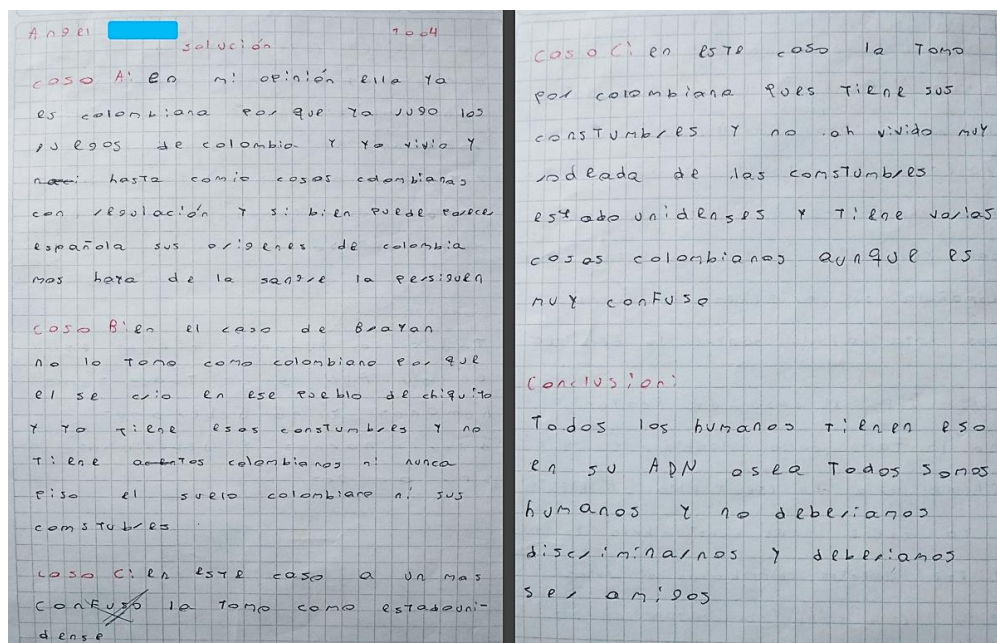 Angel 1004
solución
caso A: en mi opinión ella ya
es colombiana por que ya jugo los
juegos de colombia y ya vivio y
hasta comio cosas colombianas
con regulación y si bien puede parece
española sus origenes de colombia
mas hara de la sangre la persiguen
caso B: en el caso de Brayan
no lo tomo como colombiano por que
el se crio en ese pueblo de chiquito
y ya tiene esas constumbres y no
tiene acentos colombianos ni nunca
piso el suelo colombiano ni sus
comstubres
caso C: en este caso a un mas
confuso la tomo como estadouni-
dense
caso C: en este caso la tomo
por colombiana pues tiene sus
constumbres y no ah vivido muy
rodeada de las comstumbres
estadounidenses y tiene varias
cosas colombianas aunque es
muy confuso
Conclusion:
Todos los humanos tienen eso
en su ADN osea todos somos
humanos y no deberiamos
discriminarnos y deberiamos
ser amigos